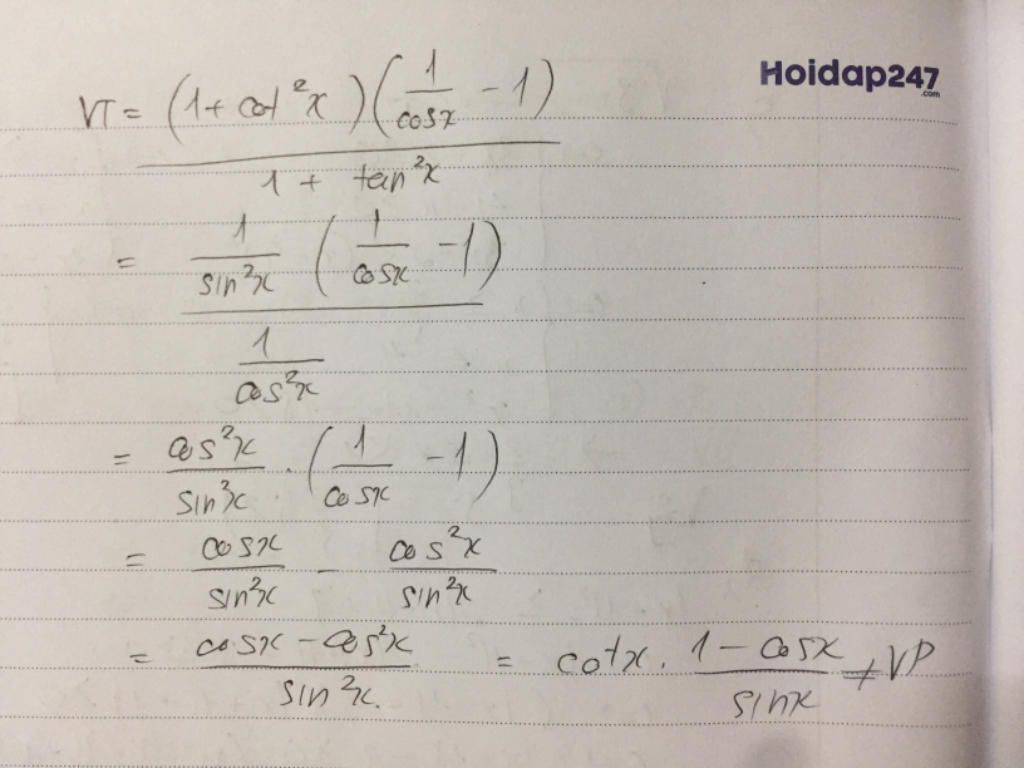 Hoidap247
.com
VT = (1 + cot²x)(1/cosx - 1)
1 + tan²x
= 1/sin²x (1/cosx - 1)
1/cos²x
= cos²x/sin²x . (1/cosx - 1)
= cosx/sin²x - cos²x/sin²x
= cosx - cos²x/sin²x. = cotx . 1 - cosx/sinx ≠ VP